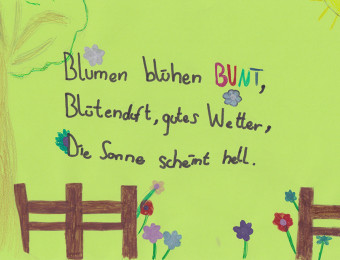 Blumen blühen BUNT,
Blütenduft, gutes Wetter,
Die Sonne scheint hell.